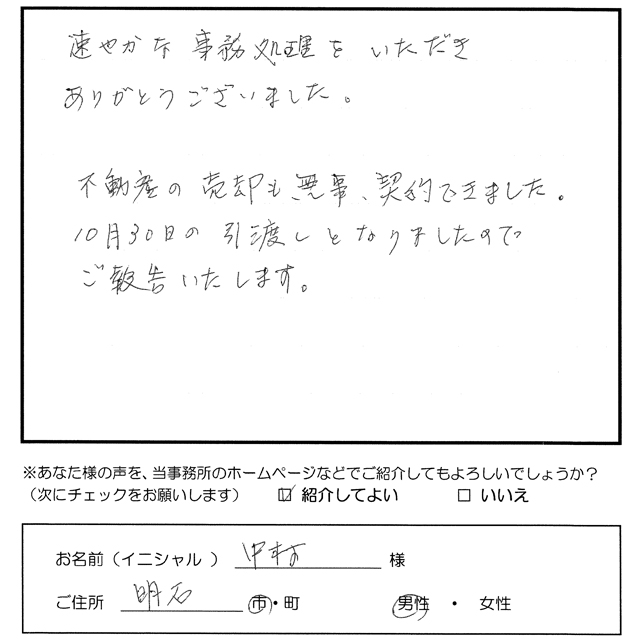 速やかな事務処理をいただき
ありがとうございました。
不動産の売却も無事、契約できました。
10月30日の引渡しとなりましたので
ご報告いたします。
※あなた様の声を、当事務所のホームページなどでご紹介してもよろしいでしょうか?
(次にチェックをお願いします) ☑ 紹介してよい □ いいえ
お名前(イニシャル) 中村 様
ご住所 明石 市・町 男性 ・ 女性